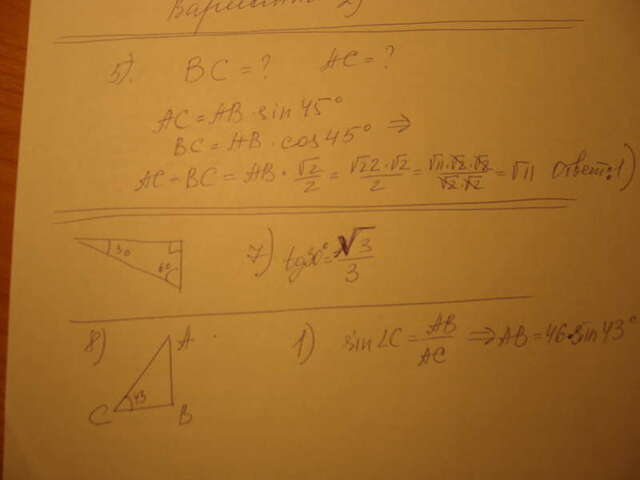 Вариант 2)
5). BC = ? AC = ?
AC = AB · sin 45°
BC = AB · cos 45° ⇒
AC = BC = AB · √2/2 = √22·√2/2 = √11·√2·√2/√2·√2 = √11 Ответ: 1)
30
60
7) tg30° = √3/3
8) A
C 43 B
1) sin∠C = AB/AC ⇒ AB = 46·sin43°